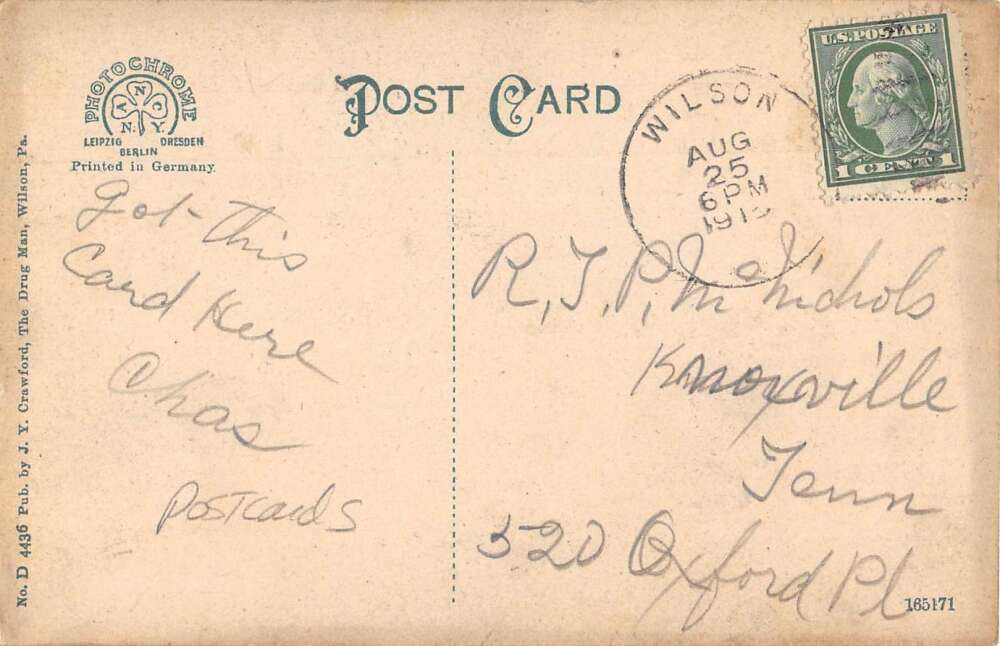 PHOTOCHROME
A N C
N. Y.
LEIPZIG DRESDEN
BERLIN
Printed in Germany
POST CARD
WILSON
AUG
25
6 PM
U.S. POSTAGE
1 CENT 1
No. D 4436 Pub. by J. Y. Crawford, The Drug Man, Wilson, Pa.
Got This
Card Here
Chas
Postcards
R, J, P, McNichols
Knoxville
Tenn
520 Oxford Pl
165171